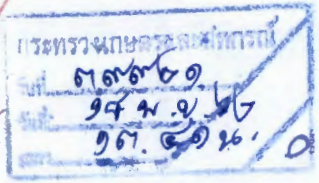 กระทรวงเกษตรและสหกรณ์
เลขที่ ๓๙๙๒๑
วันที่ ๑๘ พ.ย. ๖๒
เวลา ๑๓.๕๑ น.